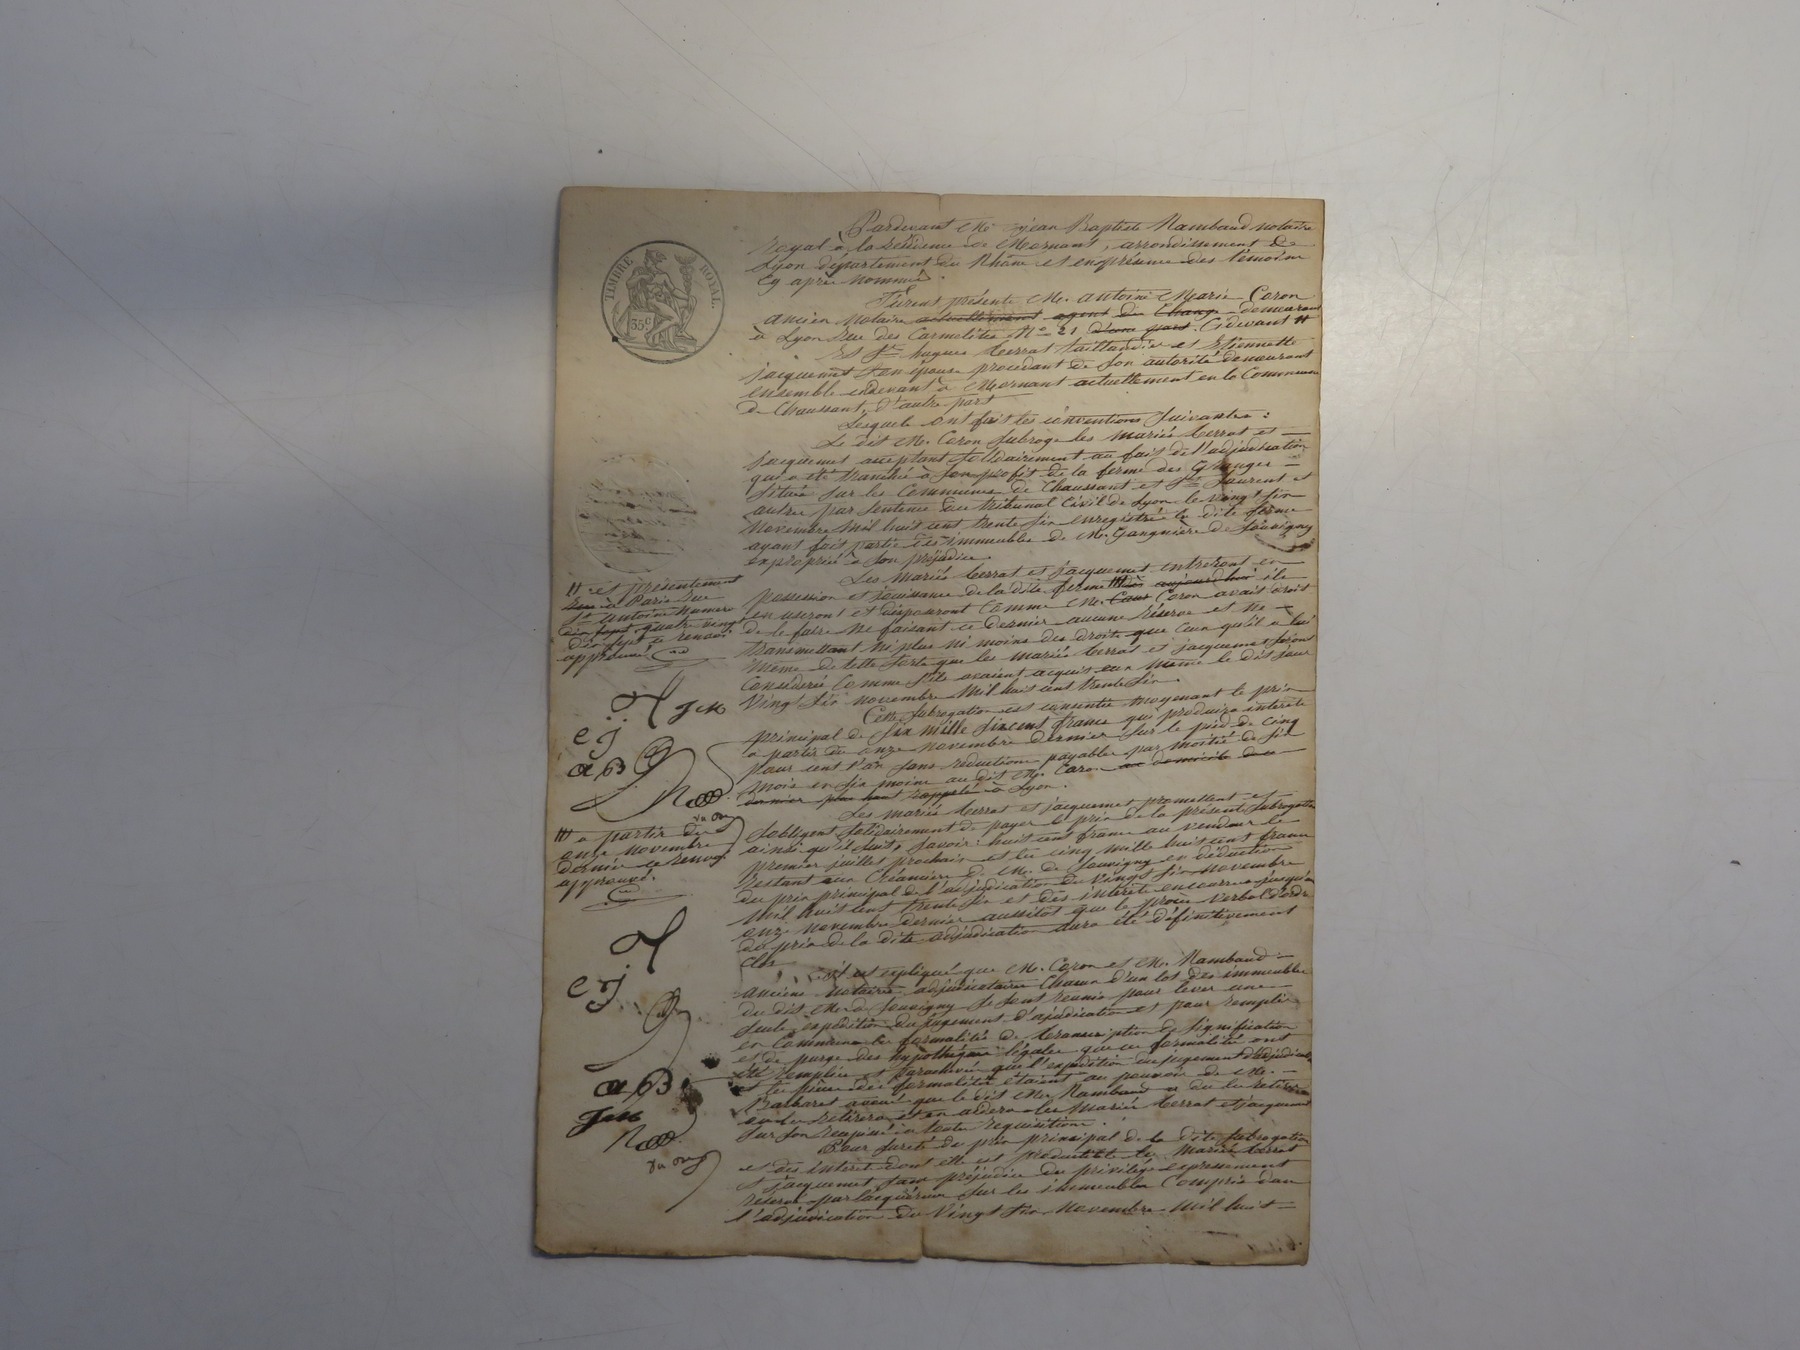 TIMBRE ROYAL
35c
Pardevant Me Jean Baptiste Rambaud notaire
Royal à la résidence de Mornant, arrondissement de
Lyon département du Rhône et en présence des témoins
Cy après nommés.
Furent présents Mr. Antoine Marie Coron
ancien Notaire actuellement agent de Change demeurant
à Lyon Rue des Carmelites No. 21 d'une part. Cidevant #
Et Sr. hugues Terrat taillandier et Etiennette
jacquemet Son épouse procédant de Son autorité demeurant
ensemble cidevant à Mornant actuellement en la Commune
de Chaussant, d'autre part
Lesquels ont fait les conventions Suivantes :
Le dit Mr. Coron Subroge les mariés Terrat et
jacquemet acceptant Solidairement au fait de l'adjudication
qui a été tranchée à Son profit de la ferme des Granges
Située Sur les Communes de Chaussant et St. Laurent et
autres par Sentence du tribunal Civil de Lyon le vingt Six
Novembre mil huit cent trente Six enregistrée la dite ferme
ayant fait partie des immeubles de Mr. Gangnière de Souvigny
exproprié à Son préjudice.
Les mariés Terrat et jacquemet entreront en
possession et jouissance de la dite ferme ## dès aujourd'hui ils
en useront et disposeront Comme Mr. Coron avait droit
de le faire Ne faisant ce dernier aucune réserve et Ne
transmettant Ni plus ni moins des droits que Ceux qu'il a lui
même de telle Sorte que les mariés Terrat et jacquemet Seront
Considérés Comme S'ils avaient acquis eux même le dit jour
Vingt Six Novembre Mil huit cent trente Six.
Cette Subrogation est consentie moyenant le prix
principal de Six Mille Six cents francs qui produira intérêts
à partir du onze novembre dernier Sur le pied de Cinq
pour cent l'an Sans réduction payables par moitié de Six
mois en Six moins au dit Mr. Coron au domicile de ce
dernier plus haut rappelé à Lyon.
Les mariés Terrat et jacquemet promettent et
S'obligent Solidairement de payer le prix de la présente Subrogation
ainsi qu'il Suit, Savoir: huit cent francs au vendeur le
premier juillet prochain et les cinq mille huit cent francs
restant aux Créanciers de Mr. de Souvigny en déduction
du prix principal de l'adjudication du Vingt Six Novembre
Mil huit cent trente Six et des intérêts encourus jusqu'au
onze Novembre dernier aussitôt que le procès Verbal d'ordre
du prix de la dite adjudication aura été définitivement
Clos
Il est expliqué que Mr. Coron et Mr. Rambaud
anciens Notaires adjudicataires Chacun d'un lot des immeubles
du dit Mr de Souvigny Se Sont réunis pour lever une
Seule expédition du jugement d'ajudication et pour remplir
en Commun les formalités de transcription de Signification
et de purge des hypothèques légales que ces formalités ont
été remplies et que l'expédition du jugement d'adjudication
et les pièces des formalités étaient au pouvoir de Mr.
Balbaret avoué que le dit Mr. Rambaud a du les retirer
ou les retirera et en aidera les mariés Terrat et jacquemet
Sur Son récépissé à toute réquisition.
Pour Sureté du prix principal de la dite Subrogation
et des intérêt dont elle est productible les Mariés Terrat
et jacquemet Sans préjudice du privilège expressement
réservé par lacquéreur Sur les immeubles Compris dans
l'adjudication du Vingt Six Novembre Mil huit
# et présentement
à Paris rue
St. antoine Numero
quatre vingt
dix Sept ce renvoi
approuvé.
JM
ej
aB
## a partir du
onze Novembre
dernier ce renvoi
approuvé.
ej
aB
JM